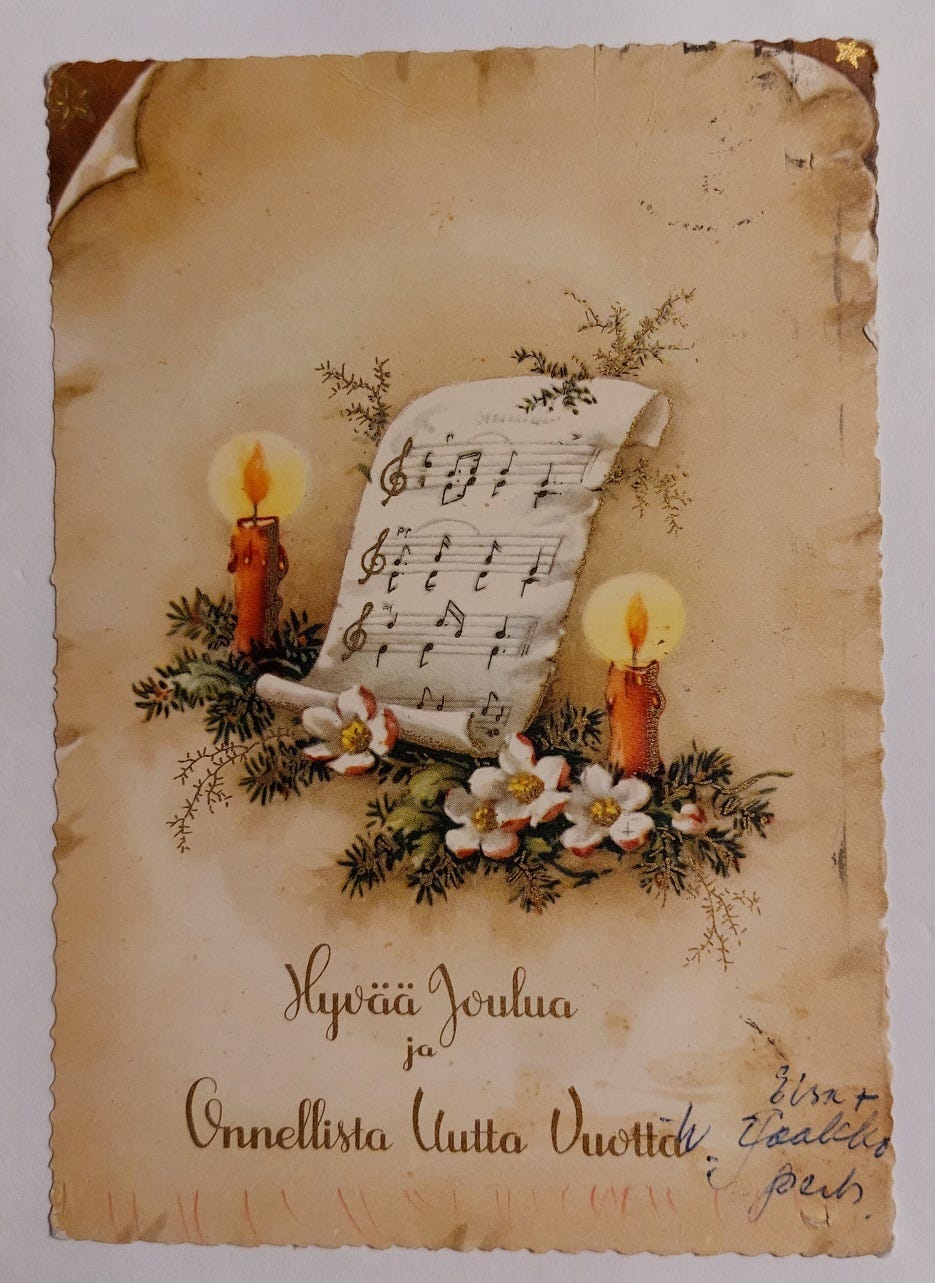 Hyvää Joulua
ja
Onnellista Uutta Vuotta
Eisa +
Jaakko